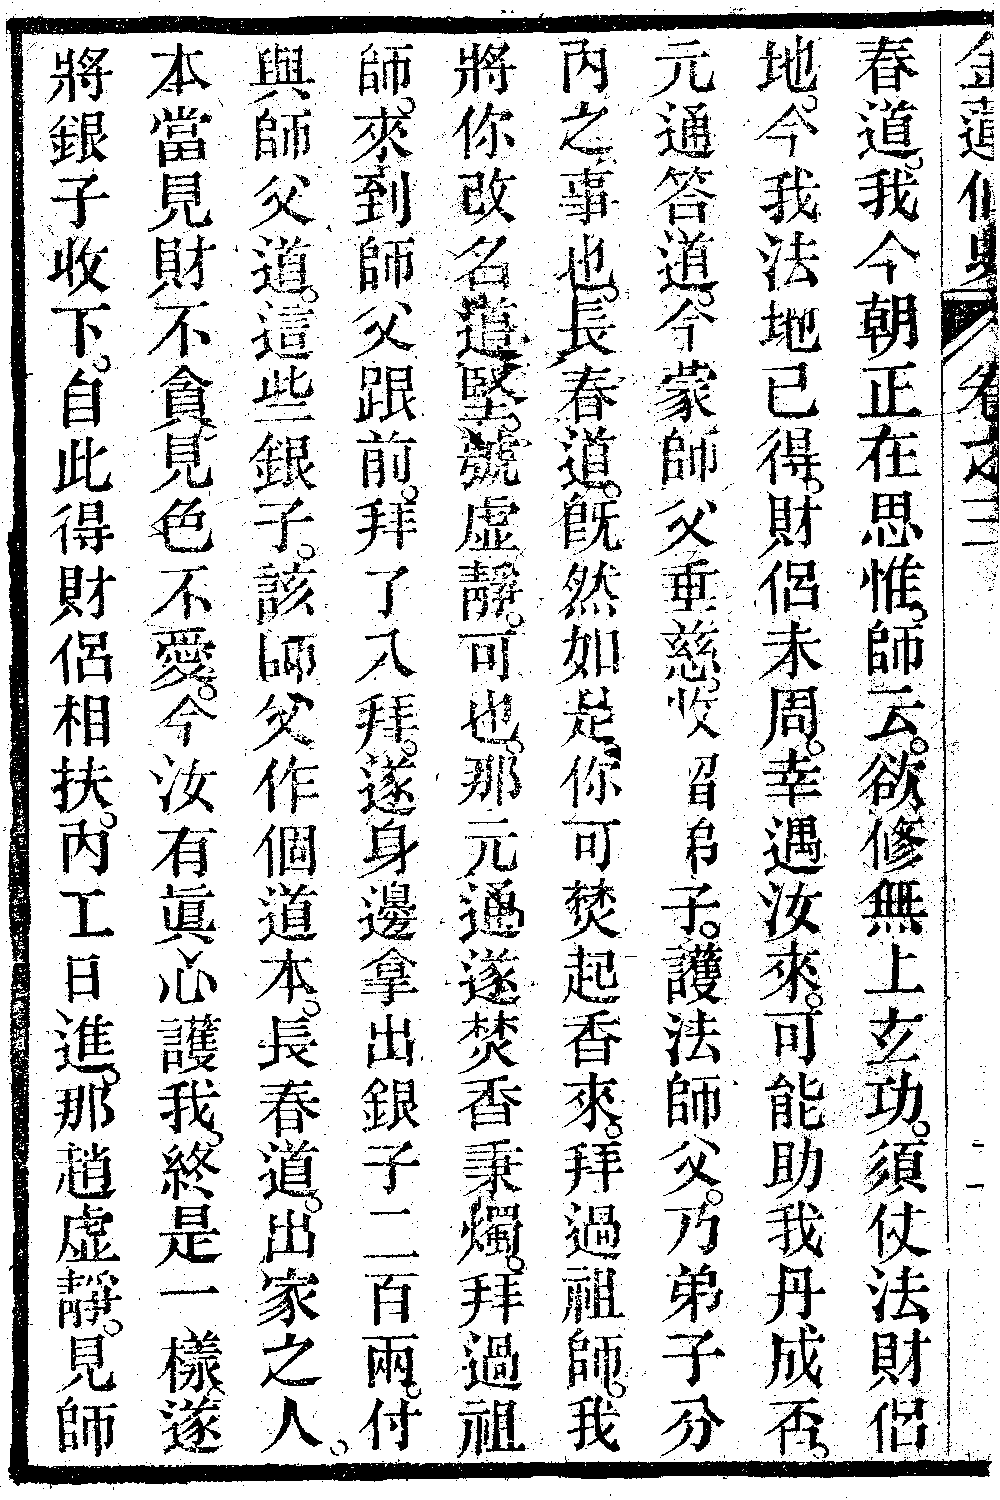 金蓮仙史 卷之三
春道。我今朝正在思惟。師云。欲修無上玄功。須仗法財侶
地。今我法地已得。財侶未周。幸遇汝來。可能助我丹成否。
元通答道。今蒙師父垂慈。收留弟子。護法師父。乃弟子分
內之事也。長春道。旣然如是。你可焚起香來。拜過祖師。我
將你改名道堅。號虛靜。可也。那元通遂焚香秉燭。拜過祖
師。來到師父跟前。拜了八拜。遂身邊拿出銀子二百兩。付
與師父道。這些銀子。該師父作個道本。長春道。出家之人。
本當見財不貪。見色不愛。今汝有眞心護我。終是一樣。遂
將銀子收下。自此得財侶相扶。內工日進。那趙虛靜。見師